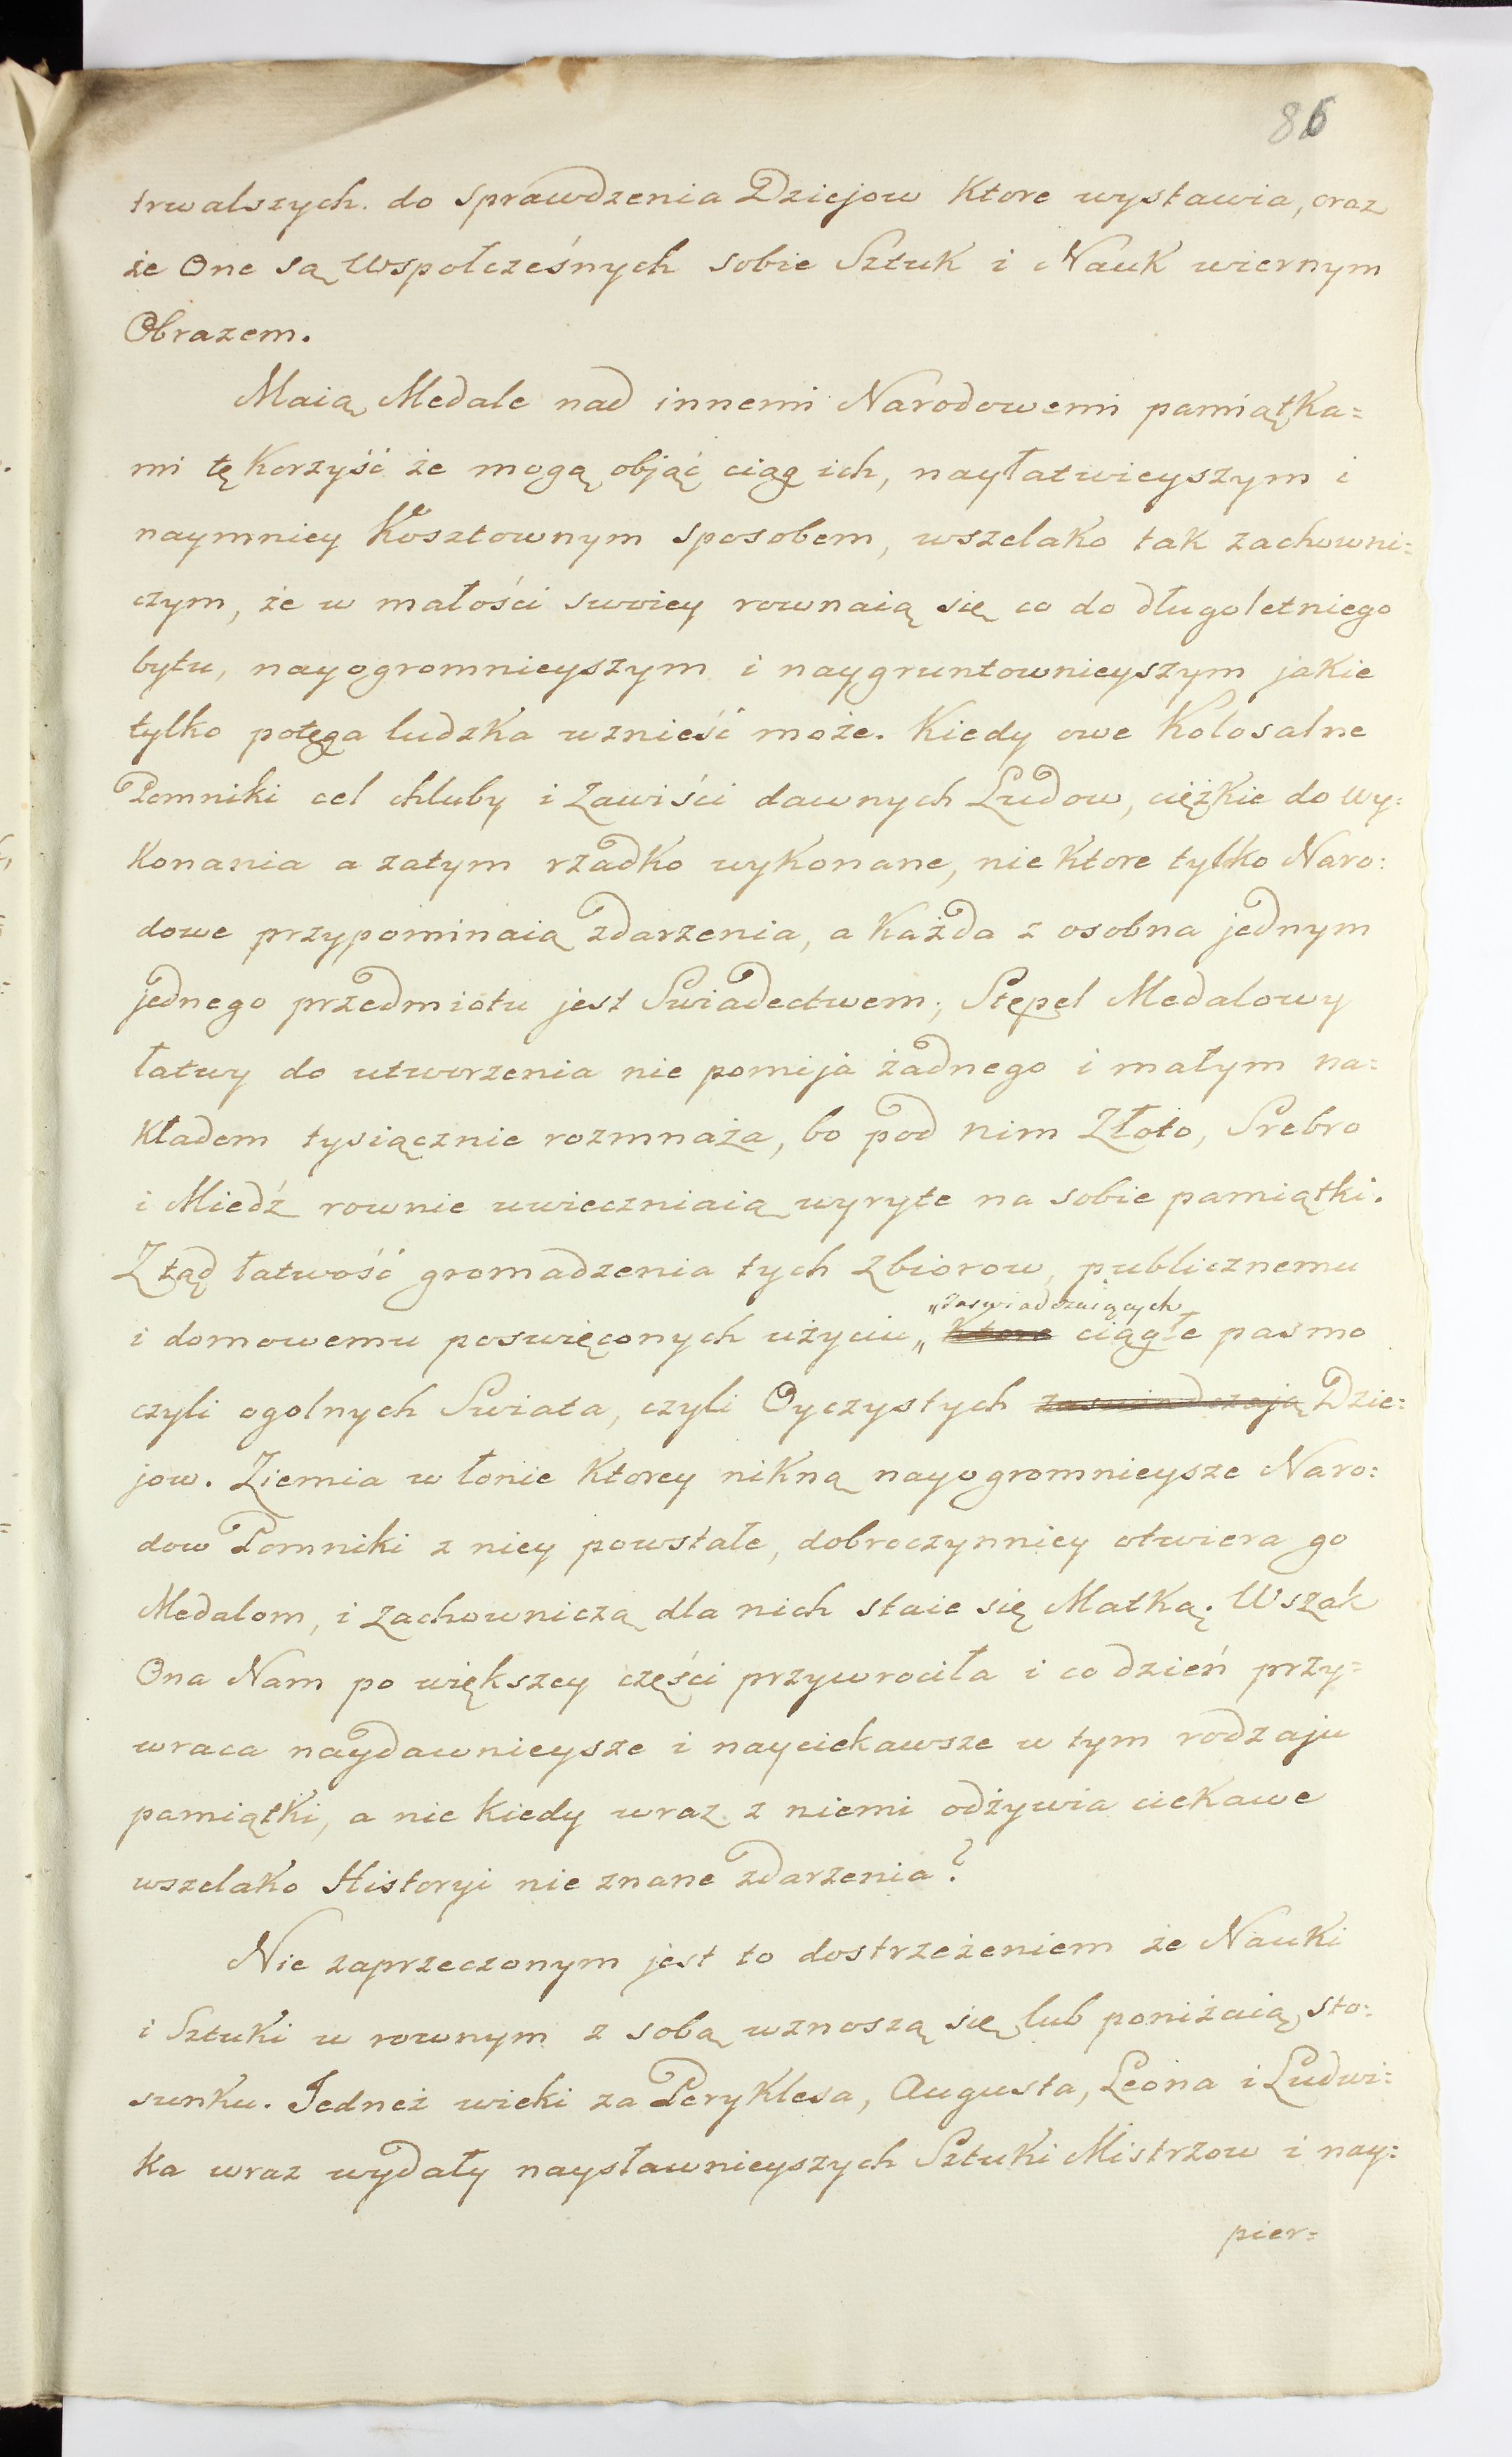 86
trwalszych. do sprawdzenia Dziejow Ktore wystawia, oraz
że One są Wspołcześnych sobie Sztuk i Nauk wiernym
Obrazem.
Maią Medale nad innemi Narodowemi pamiątka=
mi tę Korzyść że mogą objąć ciąg ich, nayłatwieyszym i
naymniey Kosztownym sposobem, wszelako tak zachowni=
czym, że w małości swoiey rownaią się co do długoletniego
bytu, nayogromnieyszym i naygruntownieyszym jakie
tylko potęga ludzka wznieść może. Kiedy owe Kolosalne
Pomniki cel chluby i Zawiści dawnych Ludow, ciężkie do Wy=
Konania a zatym rzadko wykonane, nie Ktore tylko Naro=
dowe przypominaią zdarzenia, a Każda z osobna jednym
jednego przedmiotu jest Swiadectwem; Stępel Medalowy
łatwy do utworzenia nie pomija żadnego i małym na=
Kładem tysiącznie rozmnaża, bo pod nim Złoto, Srebro
i Miedź rownie uwieczniaią wyryte na sobie pamiątki.
Z tąd łatwość gromadzenia tych Zbiorow, publicznemu
„zaswiadczaiących
i domowemu poswięconych użyciu„ Ktore ciągłe pasmo
czyli ogolnych Swiata, czyli Oyczystych zaswiadczają Dzie=
jow. Ziemia w łonie Ktorey nikną nayogromnieysze Naro=
dow Pomniki z niey powstałe, dobroczynniey otwiera go
Medalom, i Zachowniczą dla nich staie się Matką. Wszak
Ona Nam po większey części przywrociła i co dzień przy=
wraca naydawnieysze i nayciekawsze w tym rodzaju
pamiątki, a nie Kiedy wraz z niemi odżywia ciekawe
wszelako Historyi nie znane zdarzenia?
Nie zaprzeczonym jest to dostrzeżeniem że Nauki
i Sztuki w rownym z sobą wznoszą się lub poniżaią sto=
sunku. Jedneż wieki za Peryklesa, Augusta, Leona i Ludwi=
Ka wraz wydały naysławnieyszych Sztuki Mistrzow i nay=
pier=